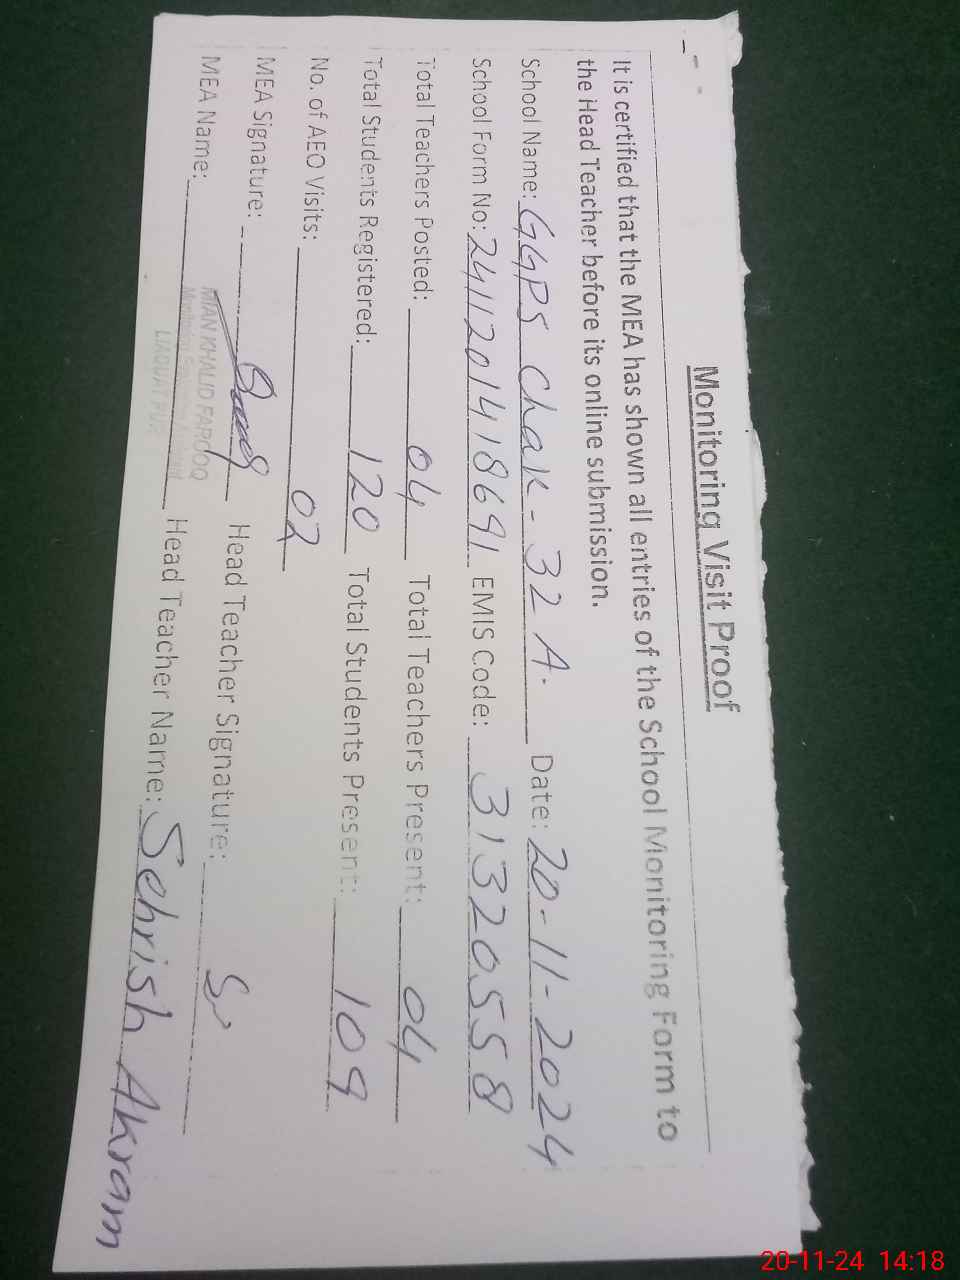 Monitoring Visit Proof
It is certified that the MEA has shown all entries of the School Monitoring Form to
the Head Teacher before its online submission.
School Name: GGPS Chak-32 A. Date: 20-11-2024
School Form No: 2411201418691 EMIS Code: 31320558
Total Teachers Posted: 04 Total Teachers Present: 04
Total Students Registered: 120 Total Students Present: 109
No. of AEO Visits: 02
MEA Signature: Head Teacher Signature:
MEA Name: MIAN KHALID FAROOQ Head Teacher Name: Sehrish Akram
LIAQUAT PUR
20-11-24 14:18